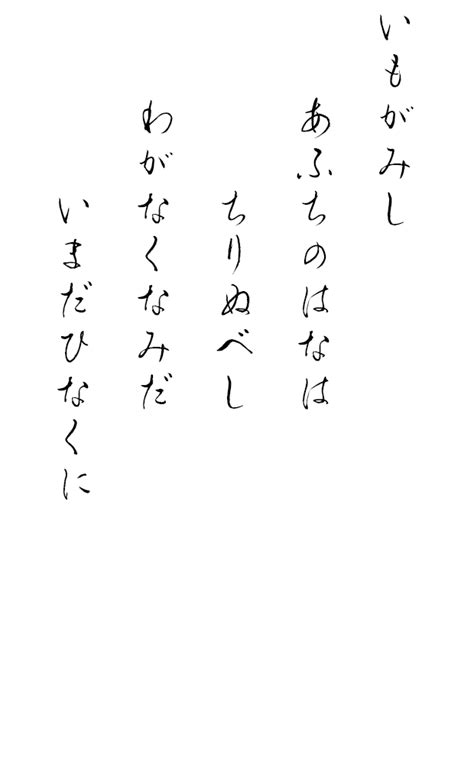 いもがみし
あふちのはなは
ちりぬべし
わがなくなみだ
いまだひなくに